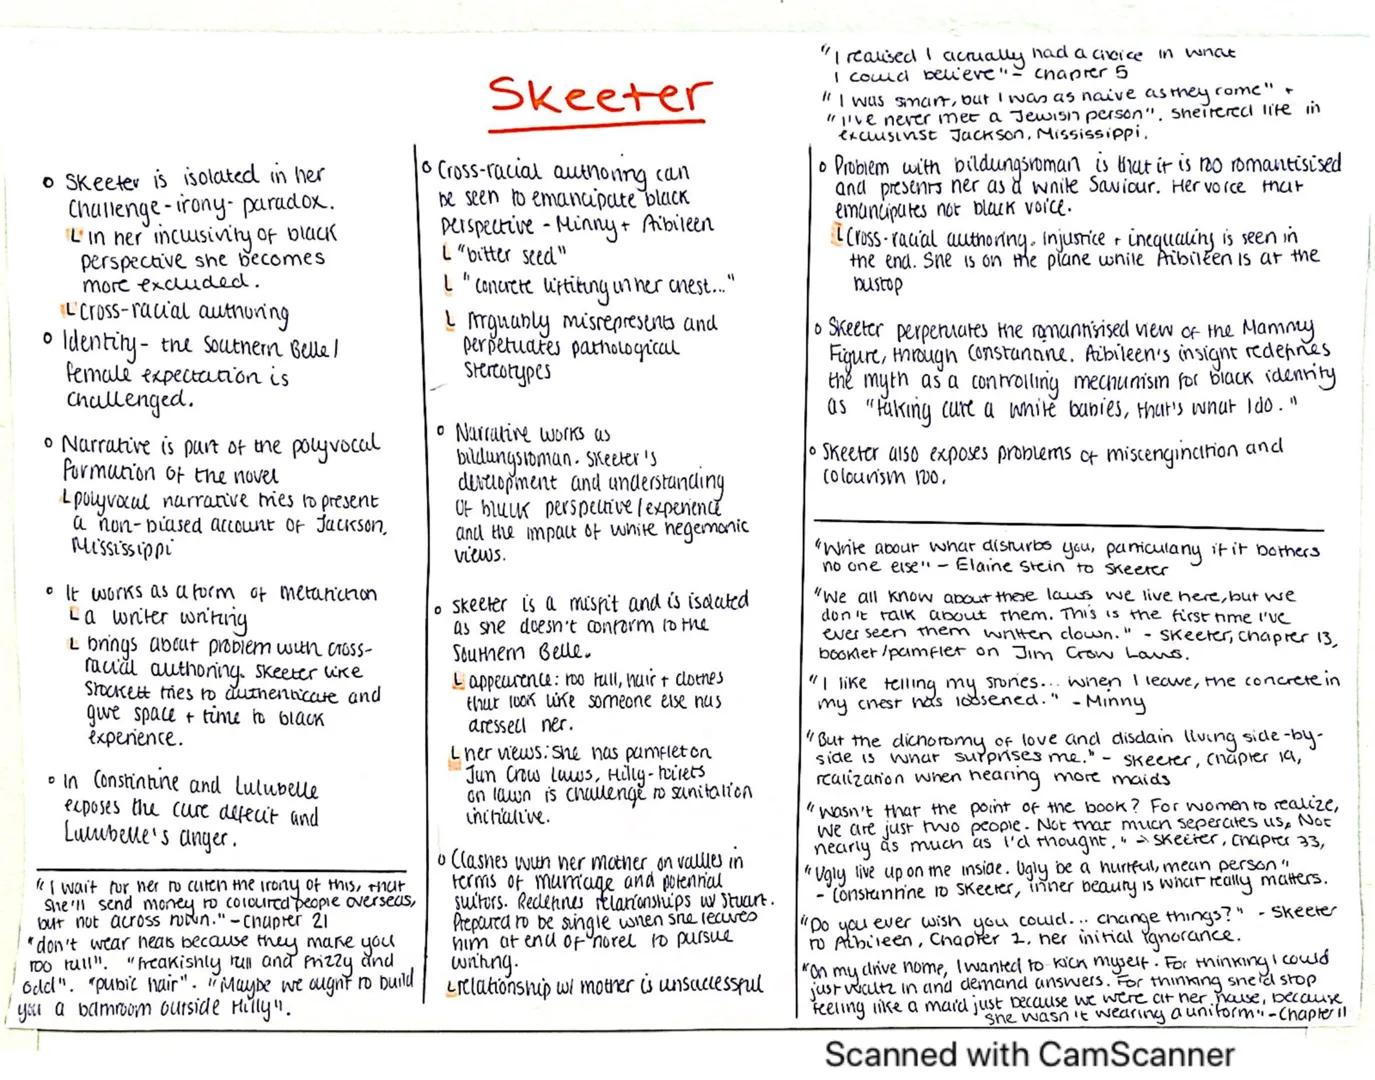 Skeeter
o Skeeter is isolated in her
challenge - irony - paradox.
L in her inclusivity of black
perspective she becomes
more excluded.
L cross-racial authoring
o Identity - the Southern Belle/
female expectation is
challenged.
o Narrative is part of the polyvocal
formation of the novel
L polyvocal narrative tries to present
a non-biased account of Jackson,
Mississippi
o It works as a form of metafiction
L a writer writing
L brings about problem with cross-
racial authoring. Skeeter like
Stockett tries to authenticate and
give space + time to black
experience.
o In Constintine and Lulubelle
exposes the care deficit and
Lulubelle's anger.
"I wait for her to catch the irony of this, that
she'll send money to coloured people overseas,
but not across town." - Chapter 21
"don't wear heals because they make you
too tall". "freakishly tall and frizzy and
odd". "pubic hair". "Maybe we ought to build
you a bathroom outside Hilly".
o Cross-racial authoring can
be seen to emancipate black
perspective - Minny + Aibileen
L "bitter seed"
L "concrete liftiting in her chest..."
L Arguably misrepresents and
perpetuates pathological
stereotypes
o Narrative works as
bildungsroman. Skeeter's
development and understanding
of black perspective/experience
and the impact of white hegemonic
views.
o Skeeter is a misfit and is isolated
as she doesn't conform to the
Southern Belle.
L appearence: too tall, hair + clothes
that look like someone else has
dressed her.
L her views: she has pamflet on
Jim Crow Laws, Hilly - toilets
on lawn is challenge to sanitation
initiative.
o Clashes with her mother on values in
terms of marriage and potential
suitors. Redefines relationships w/ Stuart.
Prepared to be single when she leaves
him at end of novel to pursue
writing.
L relationship w/ mother is unsuccessful
"I realised I actually had a choice in what
I could believe" - Chapter 5
"I was smart, but I was as naive as they come" +
"I've never met a Jewish person". Sheltered life in
Jackson, Mississippi.
o Problem with bildungsroman is that it is too romantisised
and presents her as a White Saviour. Her voice that
emancipates not black voice.
L Cross-racial authoring. Injustice + inequality is seen in
the end. She is on the plane while Aibileen is at the
bustop
o Skeeter perpetuates the romantisised view of the Mammy
Figure, through Constantine. Aibileen's insight redefines
the myth as a controlling mechanism for black identity
as "taking care a white babies, that's what I do."
o Skeeter also exposes problems of miscengination and
colourism too.
"Write about what disturbs you, particulany if it bothers
no one else" - Elaine Stein to Skeeter
"We all know about these laws we live here, but we
don't talk about them. This is the first time I've
ever seen them written down." - Skeeter, Chapter 13,
booklet/pamflet on Jim Crow Laws.
"I like telling my stories... when I leave, the concrete in
my chest has loosened." - Minny
"But the dichotomy of love and disdain living side-by-
side is what surprises me." - Skeeter, Chapter 19,
realization when hearing more maids
"Wasn't that the point of the book? For women to realize,
We are just two people. Not that much seperates us. Not
nearly as much as I'd thought." - Skeeter, Chapter 33,
"Ugly live up on the inside. Ugly be a hurtful, mean person"
- Constantine to Skeeter, inner beauty is what really matters.
"Do you ever wish you could... change things?" - Skeeter
to Aibileen, Chapter 1. her initial ignorance.
"On my drive home, I wanted to kick myself. For thinking I could
just waltz in and demand answers. For thinking she'd stop
feeling like a maid just because we were at her house, because
she wasn't wearing a uniform" - Chapter 11
Scanned with CamScanner